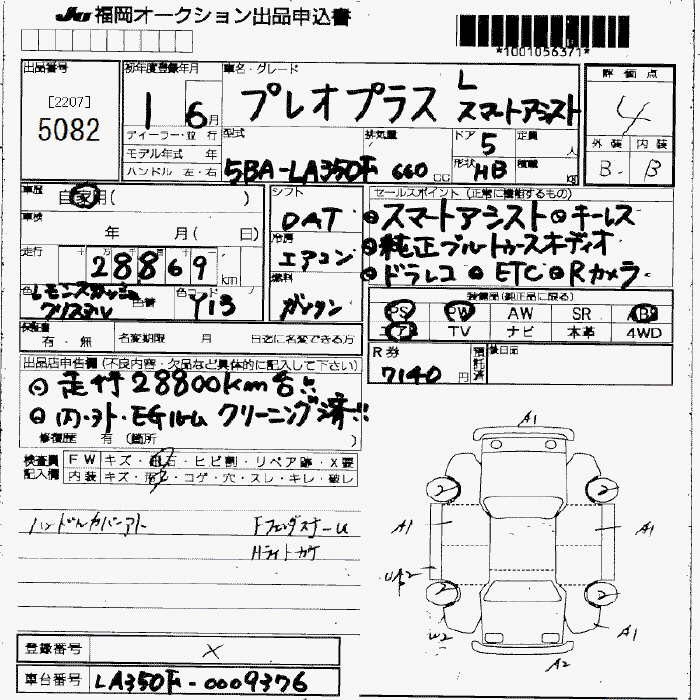 JU 福岡オークション出品申込書
*1001056371*
出品番号
[2207]
5082
初年度登録年月
1 6月
ディーラー・並行
モデル年式 年
ハンドル 左・右
車名・グレード
プレオプラス L スマートアシスト
型式
5BA-LA350F
排気量
660 CC
ドア
5
形状
HB
定員
人
積載
Kg
評価点
4
外装 内装
B B
車歴
自家用( )
車検
年 月( 日)
走行
28869 km
色
レモンスカッシュ
クリスタル
色替
色コード
Y13
シフト
DAT
冷房
エアコン
燃料
ガソリン
セールスポイント(正常に機能するもの)
◎スマートアシスト◎キーレス
◎純正ブルートゥースオーディオ
◎ドラレコ ◎ETC ◎Rカメラ
装備品(純正品に限る)
PS PW AW SR ABS
エアB TV ナビ 本革 4WD
保証書
有・無
名変期限 月 日迄に名変できる方
R券
7140円
預託済
後日面
出品店申告欄(不良内容・欠品など具体的に記入して下さい)
◎走行28800km台!!
◎内・外・EGルーム クリーニング済!!
修復歴 有(箇所 )
検査員
記入欄
FW キズ・飛石・ヒビ割・リペア跡・X要
内装 キズ・汚れ・コゲ・穴・スレ・キレ・破レ
ハンドルカバーアト
Hライトカケ
A1
2 2
A1 A1
UA2
2 2
W2 A1
A2
登録番号
X
車台番号
LA350F-0009376